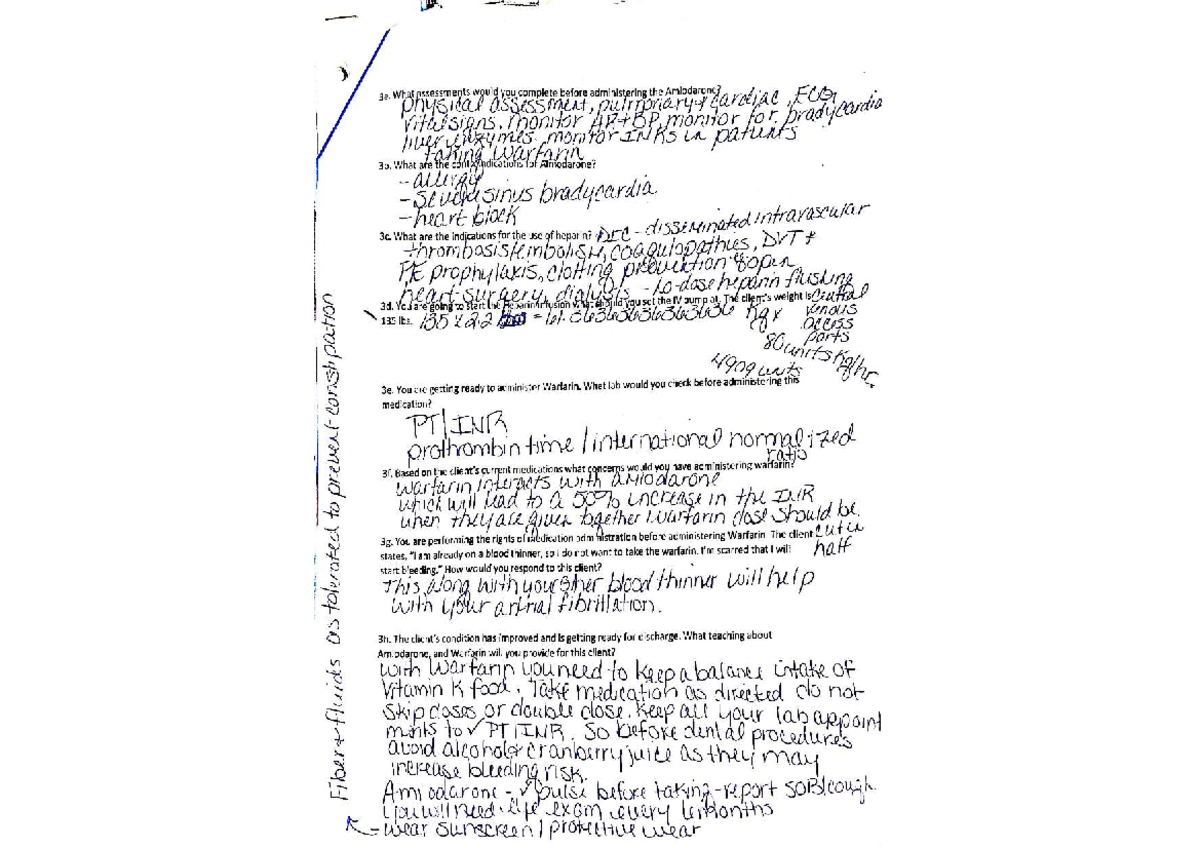 3a. What assessments would you complete before administering the Amiodarone?
physical assessment, pulmonary + cardiac, ECG,
Vital signs. monitor AP + BP, monitor for bradycardia
liver enzymes. monitor INRs in patients
taking Warfarin
3b. What are the contraindications for Amiodarone?
- allergy
- Severe sinus bradycardia
- heart block
3c. What are the indications for the use of heparin? DIC - disseminated intravascular
thrombosis/embolism, coagulopathies, DVT +
PE prophylaxis, clotting prevention open
heart surgery, dialysis - lo-dose heparin flushing
central
venous
access
ports
3d. You are going to start the Heparin infusion what should you set the IV pump at. The client's weight is
135 lbs. 135 ÷ 2.2 = 61.363636363636 kg x
80 units kg/hr
4909 units
3e. You are getting ready to administer Warfarin. What lab would you check before administering this
medication?
PT/INR
prothrombin time / international normalized
ratio
3f. Based on the client's current medications what concerns would you have administering warfarin?
Warfarin interacts with amiodarone
which will lead to a 50% increase in the INR
when they are given together Warfarin dose should be
cut in
half
3g. You are performing the rights of medication administration before administering Warfarin. The client
states, "I am already on a blood thinner, so I do not want to take the warfarin. I'm scarred that I will
start bleeding." How would you respond to this client?
This along with your other blood thinner will help
with your atrial fibrillation.
3h. The client's condition has improved and is getting ready for discharge. What teaching about
Amiodarone, and Warfarin will you provide for this client?
with Warfarin you need to keep a balance intake of
Vitamin K food. Take medication as directed do not
skip doses or double dose. Keep all your lab appoint
ments to ✓ PT/INR. So before dental procedures
avoid alcohol + cranberry juice as they may
increase bleeding risk.
Amiodarone - ✓ pulse before taking - report SOB/cough
you will need eye exam every 6 months
- wear sunscreen / protective wear
Fiber + fluids as tolerated to prevent constipation